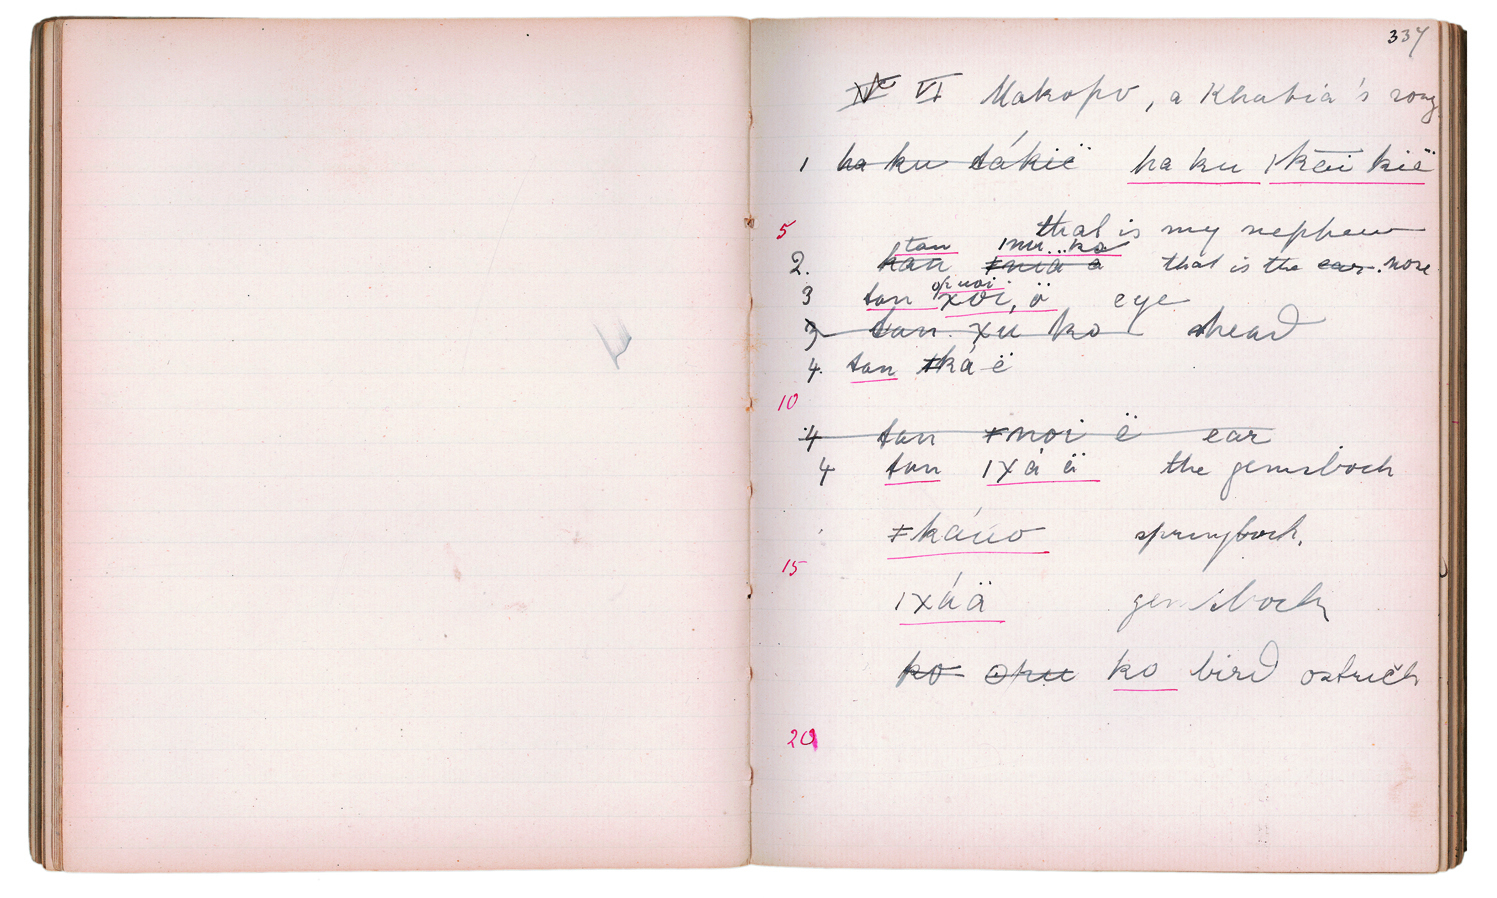 337
N͟o͟ VI Makopo, a Khatia's song
1 ha ku tákië ha ku |k̄ēi kië
5 that is my nephew
tan |nu...ka
2. han ǂnia a that is the ear. nose
or uoi
3 tan χoi, ö eye
3 tan χu ko head
4. tan ǂká-ë
10
4 tan ǂnoi ë ear
4 tan |χá ä the gemsbock
ǂkáuo springbock.
15
|χúä gemsbock
ko oku ko bird ostrich
20